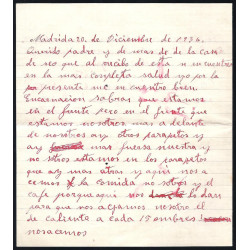 Madrid a 20. de Diciembre de 1936.
Querido padre y de mas de de la casa
de seo que al recibo de esta se encuentren
en la mas completa salud yo por la
presente me encuentro bien.
Encarnacion sabras que estamos
en el frente pero en el frente que
estamos nosotros mas a delante
de nosotros ay otros parapetos y
ay mas fuersa nuestra y
no sotros estamos en los parapetos
que ay mas atras y aqui nos a
cemos la comida no sotros y el
cafe porque aqui nos lo dan
para que nos a gamos nostro el
de caliente a cada 15 ombres
nos acemos